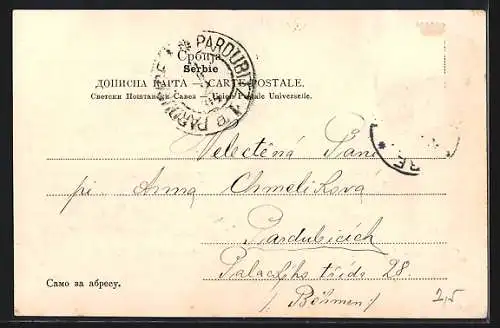 Србија
Serbie
ДОПИСНА КАРТА — CARTE POSTALE.
Светски Поштански Савез — Union Postale Universelle.
PARDUBITZ
PARDUBICE
Velectěná Paní
pí Anna Chmelíková
Pardubicích
Palackýho třída 28.
/: Böhmen :/
Само за адресу.
2,5